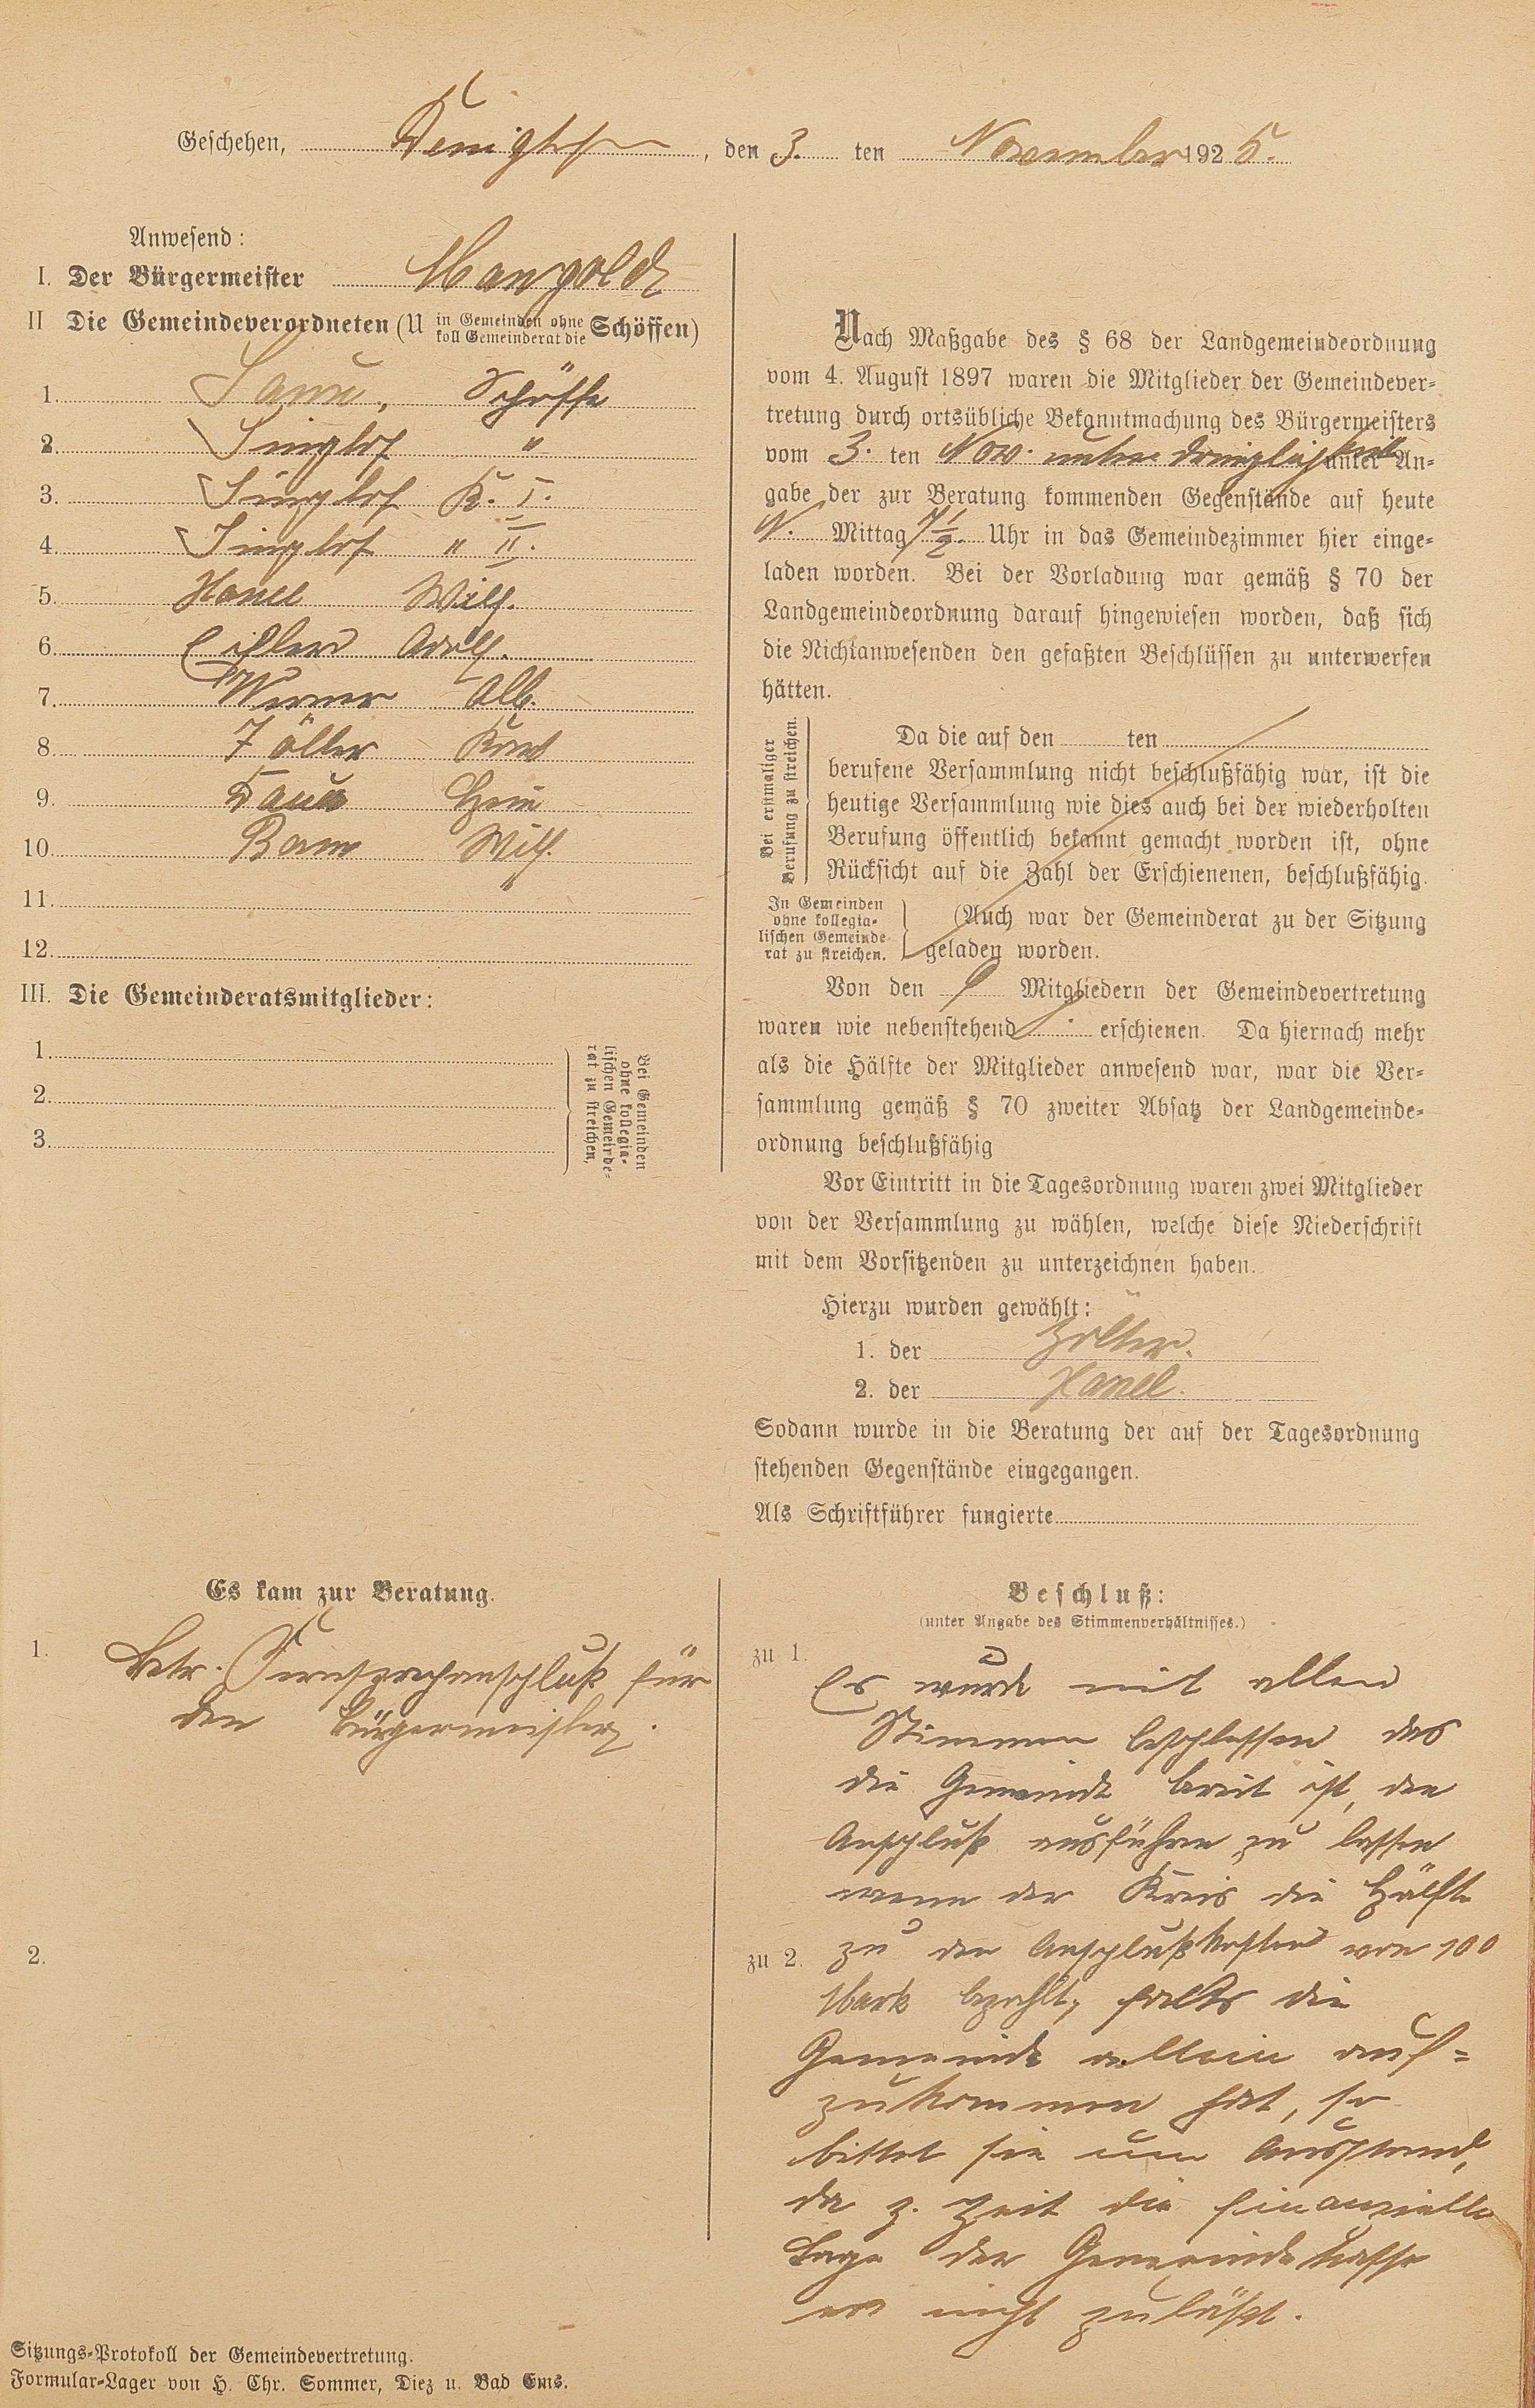 Geschehen, den 3. ten November 1925.
Anwesend:
I. Der Bürgermeister Mangold
II Die Gemeindeverordneten (U in Gemeinden ohne koll Gemeinderat die Schöffen)
1. Schöffe
2. Singhof "
3. Singhof K. I.
4. Singhof " II.
5. Hanel Wilh.
6. Adolf.
7. Werner Alb.
8. Zöller Karl
9. Hein
10. Wilh.
11.
12.
III. Die Gemeinderatsmitglieder:
1.
2.
3.
Bei Gemeinden
ohne kollegia-
lischen Gemeinde-
rat zu streichen,
Nach Maßgabe des § 68 der Landgemeindeordnung
vom 4. August 1897 waren die Mitglieder der Gemeindever-
tretung durch ortsübliche Bekanntmachung des Bürgermeisters
vom 3. ten Nov. unter Dringlichkeit unter An-
gabe der zur Beratung kommenden Gegenstände auf heute
N. Mittag 7½. Uhr in das Gemeindezimmer hier einge-
laden worden. Bei der Vorladung war gemäß § 70 der
Landgemeindeordnung darauf hingewiesen worden, daß sich
die Nichtanwesenden den gefaßten Beschlüssen zu unterwerfen
hätten.
Bei erstmaliger
Berufung zu streichen.
Da die auf den ten
berufene Versammlung nicht beschlußfähig war, ist die
heutige Versammlung wie dies auch bei der wiederholten
Berufung öffentlich bekannt gemacht worden ist, ohne
Rücksicht auf die Zahl der Erschienenen, beschlußfähig.
In Gemeinden
ohne kollegia-
lischen Gemeinde-
rat zu streichen.
(Auch war der Gemeinderat zu der Sitzung
geladen worden.
Von den Mitgliedern der Gemeindevertretung
waren wie nebenstehend erschienen. Da hiernach mehr
als die Hälfte der Mitglieder anwesend war, war die Ver-
sammlung gemäß § 70 zweiter Absatz der Landgemeinde-
ordnung beschlußfähig
Vor Eintritt in die Tagesordnung waren zwei Mitglieder
von der Versammlung zu wählen, welche diese Niederschrift
mit dem Vorsitzenden zu unterzeichnen haben.
Hierzu wurden gewählt:
1. der Zöller.
2. der Hanel.
Sodann wurde in die Beratung der auf der Tagesordnung
stehenden Gegenstände eingegangen.
Als Schriftführer fungierte
Es kam zur Beratung.
1. Betr. Fernsprechanschluß für
den Bürgermeister.
2.
Beschluß:
(unter Angabe des Stimmenverhältnisses.)
zu 1.
Es wurde mit allen
Stimmen beschlossen das
die Gemeinde bereit ist, den
Anschluß ausführen zu lassen
wenn der Kreis die Hälfte
zu 2. zu den Anschlußkosten von 100
Mark bezahlt, falls die
Gemeinde allein auf-
zukommen hat, so
bittet sie um Ausstand,
da z. Zeit die finanzielle
Lage der Gemeindekasse
es nicht zuläßt.
Sitzungs-Protokoll der Gemeindevertretung.
Formular-Lager von H. Chr. Sommer, Diez u. Bad Ems.